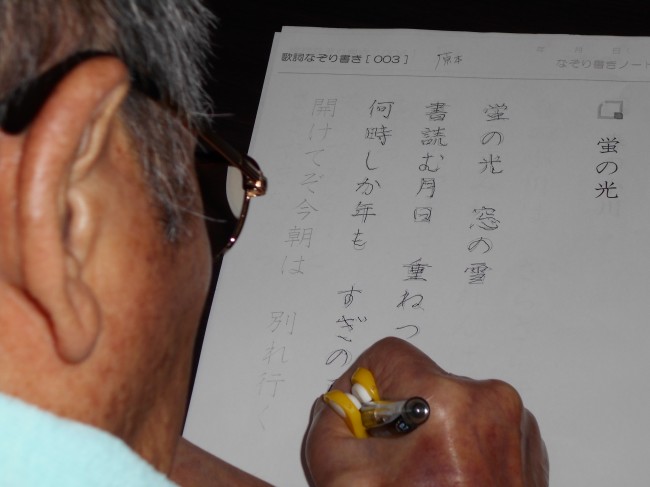 歌詞なぞり書き [003]
原本
なぞり書きノート
蛍の光
蛍の光 窓の雪
書読む月日 重ねつ
何時しか年も すぎの
開けてぞ今朝は 別れ行く